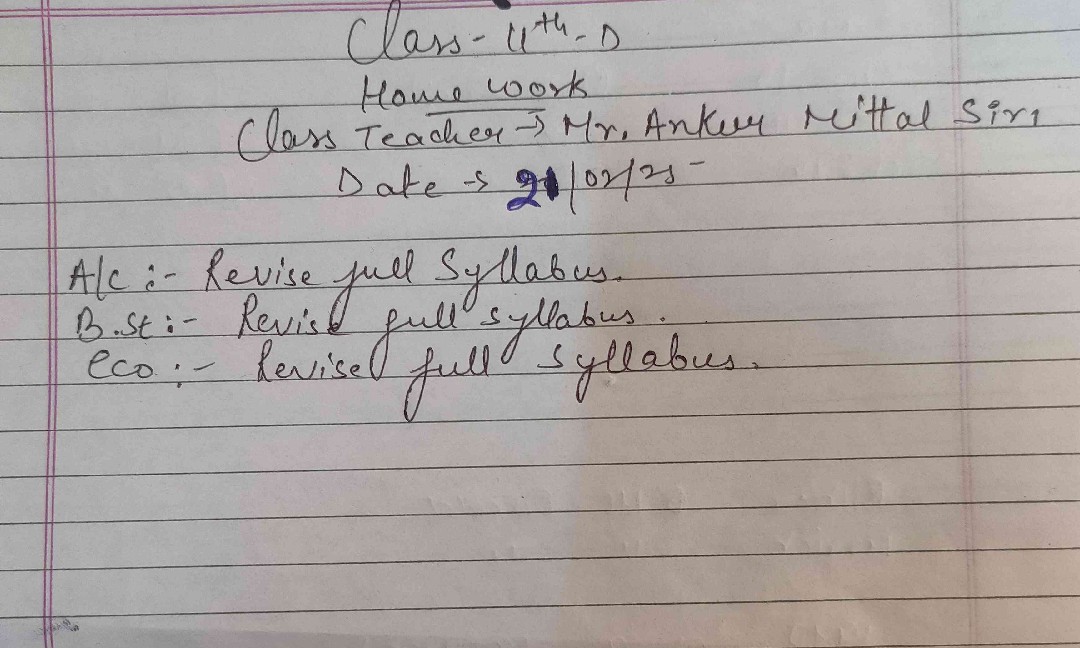 Class - 11th - D
Home work
Class Teacher → Mr. Ankur Mittal Sir.
Date → 21/02/25
A/c :- Revise full Syllabus.
B.st :- Revise full syllabus.
eco :- Revise full syllabus.